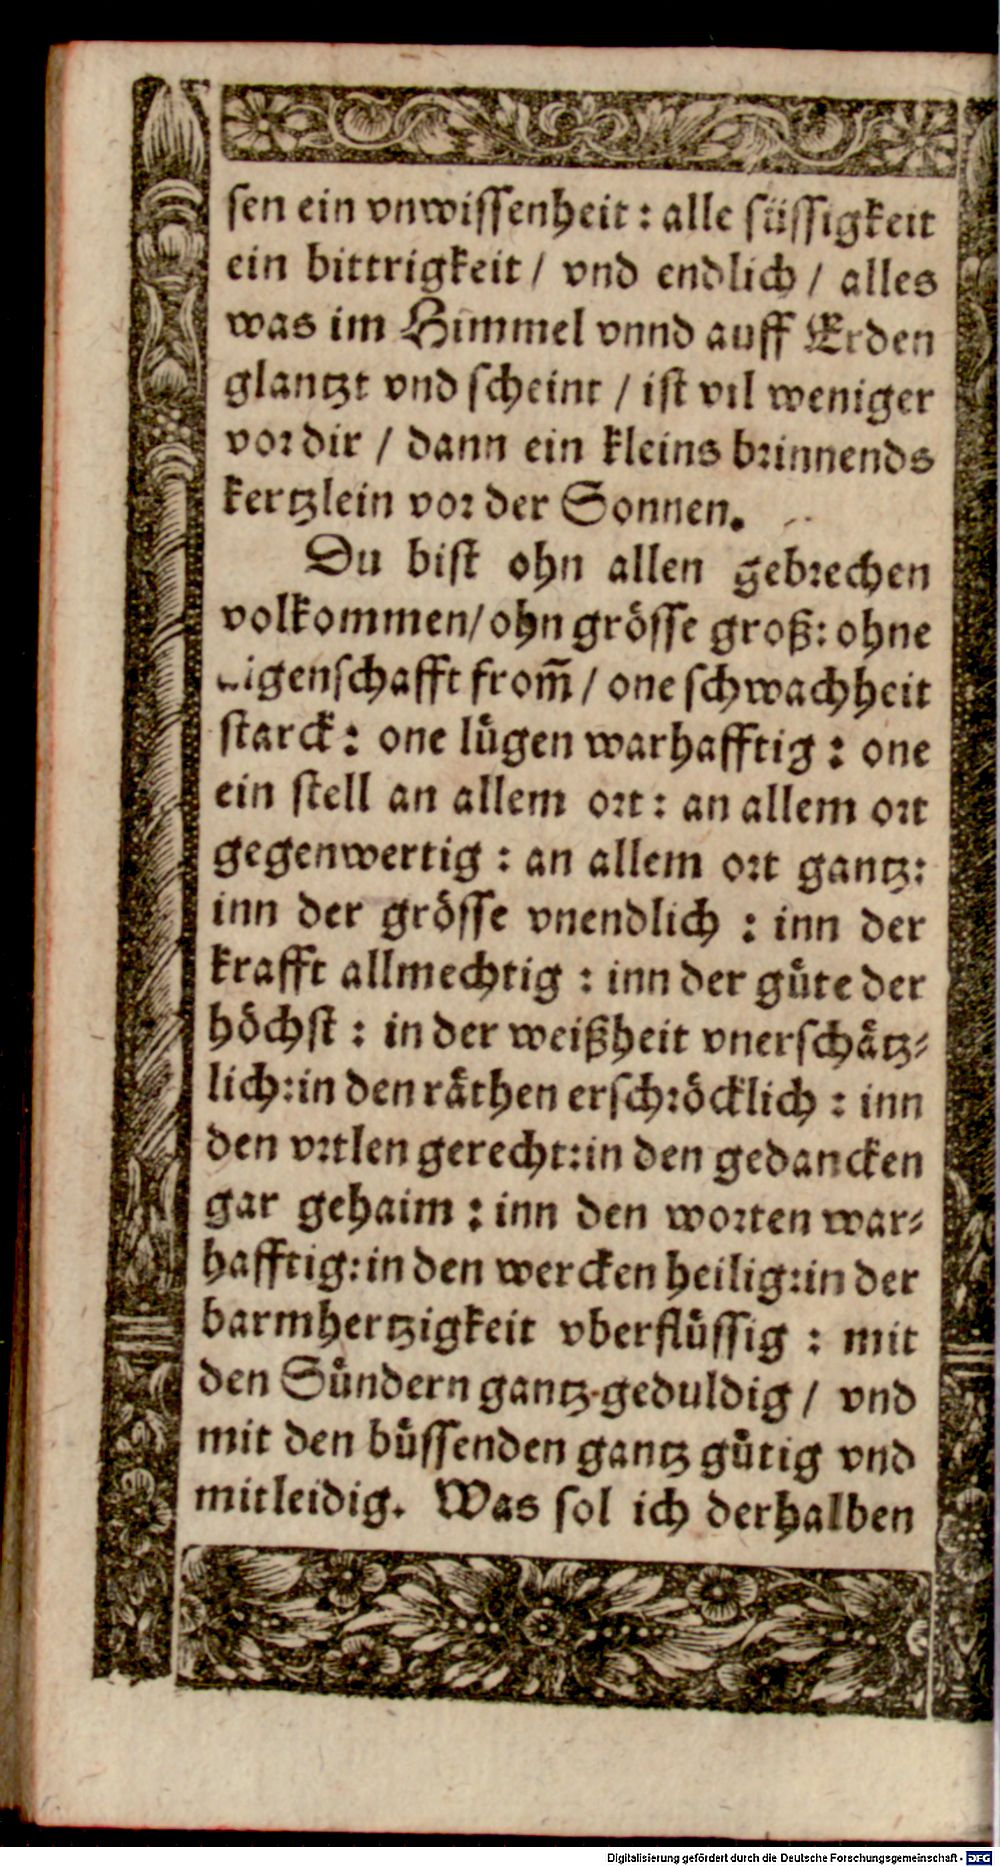 sen ein vnwissenheit : alle süssigkeit
ein bittrigkeit / vnd endlich / alles
was im Himmel vnnd auff Erden
glantzt vnd scheint / ist vil weniger
vor dir / dann ein kleins brinnends
kertzlein vor der Sonnen.
Du bist ohn allen gebrechen
volkommen/ ohn grösse groß: ohne
eigenschafft from̃ / one schwachheit
starck : one lügen warhafftig : one
ein stell an allem ort : an allem ort
gegenwertig : an allem ort gantz:
inn der grösse vnendlich : inn der
krafft allmechtig : inn der güte der
höchst : in der weißheit vnerschätz⸗
lich: in den räthen erschröcklich : inn
den vrtlen gerecht: in den gedancken
gar gehaim : inn den worten war⸗
hafftig: in den wercken heilig: in der
barmhertzigkeit vberflüssig : mit
den Sündern gantz geduldig / vnd
mit den büssenden gantz gütig vnd
mitleidig. Was sol ich derhalben
Digitalisierung gefördert durch die Deutsche Forschungsgemeinschaft - DFG